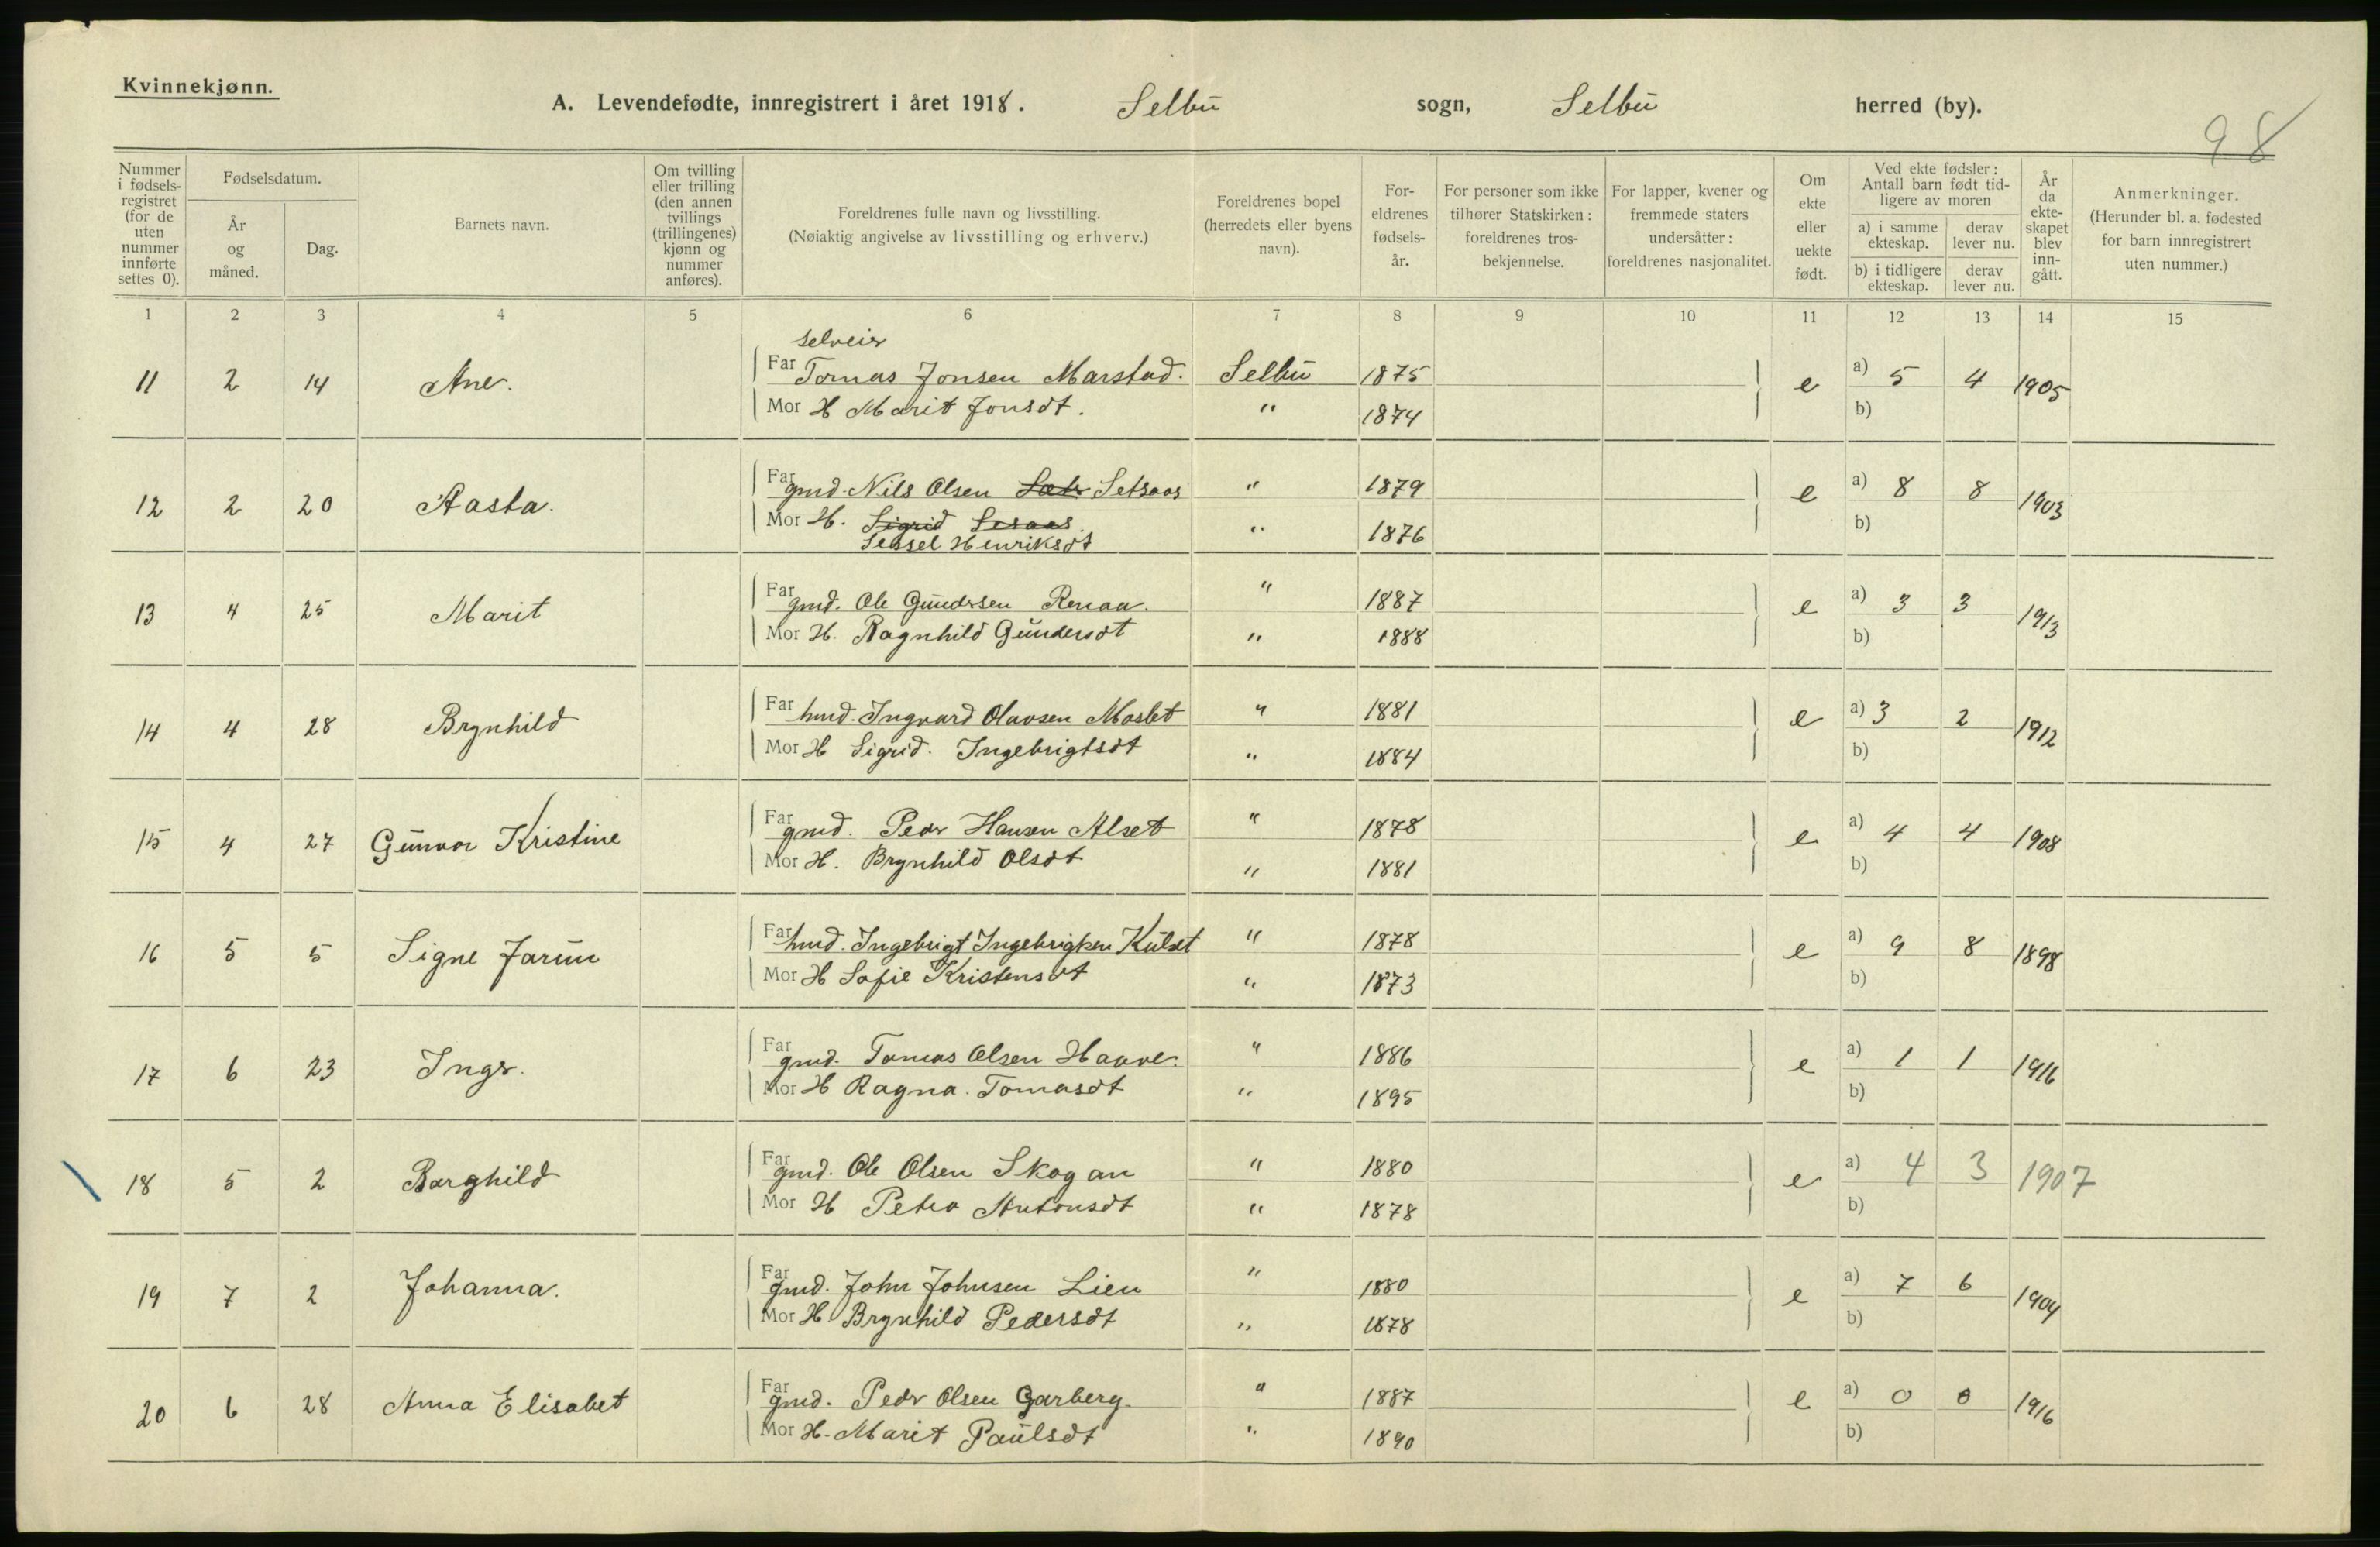 Kvinnekjønn.
A. Levendefødte, innregistrert i året 1918. Selbu sogn, Selbu herred (by).
98
Nummer i fødselsregistret (for de uten nummer innførte settes 0). Fødselsdatum. År og måned. Dag. Barnets navn. Om tvilling eller trilling (den annen tvillings (trillingenes) kjønn og nummer anføres). Foreldrenes fulle navn og livsstilling. (Nøiaktig angivelse av livsstilling og erhverv.) Foreldrenes bopel (herredets eller byens navn). Foreldrenes fødselsår. For personer som ikke tilhører Statskirken: foreldrenes trosbekjennelse. For lapper, kvener og fremmede staters undersåtter: foreldrenes nasjonalitet. Om ekte eller uekte født. Ved ekte fødsler: Antall barn født tidligere av moren a) i samme ekteskap. derav lever nu. b) i tidligere ekteskap. derav lever nu. År da ekteskapet blev inngått. Anmerkninger. (Herunder bl. a. fødested for barn innregistrert uten nummer.)
1 2 3 4 5 6 7 8 9 10 11 12 13 14 15
selveier
11 2 14 Ane. Far Tomas Jonsen Marstad. Selbu 1875 e a) 5 4 1905
Mor H Marit Jonsdt. " 1874 b)
12 2 20 Aasta. Far gmd. Nils Olsen Sæt Setsaas " 1879 e a) 8 8 1903
Mor H. Sigrid Sesaas. " 1876 b)
Sessel Henriksdt
13 4 25 Marit Far gmd. Ole Gundersen Renaa. " 1887 e a) 3 3 1913
Mor H. Ragnhild Gundersdt " 1888 b)
14 4 28 Brynhild Far hmd. Ingvard Olavsen Moslet " 1881 e a) 3 2 1912
Mor H Sigrid. Ingebrigtsdt " 1884 b)
15 4 27 Gunvor Kristine Far gmd. Peder Hansen Alset " 1878 e a) 4 4 1908
Mor H. Brynhild Olsdt " 1881 b)
16 5 5 Signe Jarun Far hmd. Ingebrigt Ingebrigtsen Kulset " 1878 e a) 9 8 1898
Mor H Sofie Kristensdt " 1873 b)
17 6 23 Inger. Far gmd. Tomas Olsen Haave. " 1886 e a) 1 1 1916
Mor H Ragna. Tomasdt " 1895 b)
18 5 2 Borghild Far gmd. Ole Olsen Skogan " 1880 e a) 4 3 1907
Mor H Petra Antonsdt " 1878 b)
19 7 2 Johanna. Far gmd. John Johnsen Lien " 1880 e a) 7 6 1904
Mor H Brynhild Pedersdt " 1878 b)
20 6 28 Anna Elisabet Far gmd. Peder Olsen Garberg. " 1887 e a) 0 0 1916
Mor H. Marit Paulsdt " 1890 b)